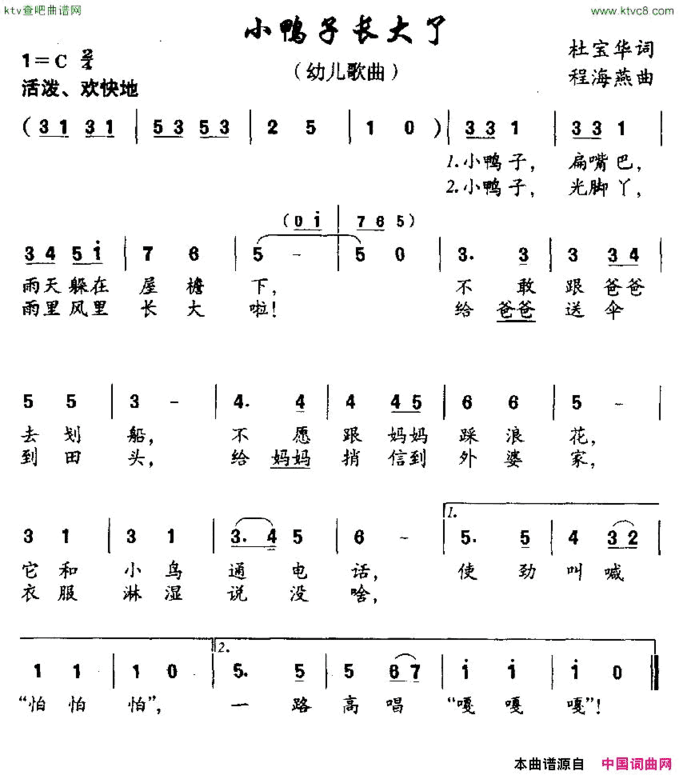 ktv查吧曲谱网
www.ktvc8.com
小鸭子长大了
1=C 2/4
(幼儿歌曲)
杜宝华词
活泼、欢快地
程海燕曲
(3 1 3 1 | 5 3 5 3 | 2 5 | 1 0 ) | 3 3 1 | 3 3 1 |
1.小鸭子, 扁嘴巴,
2.小鸭子, 光脚丫,
(0 i | 7 6 5)
3 4 5 i | 7 6 | 5 - | 5 0 | 3. 3 | 3 3 4 |
雨天躲在 屋檐下, 不敢跟爸爸
雨里风里 长大啦! 给爸爸送伞
5 5 | 3 - | 4. 4 | 4 4 5 | 6 6 | 5 - |
去划船, 不愿跟妈妈踩浪花,
到田头, 给妈妈捎信到外婆家,
1.
3 1 | 3 1 | 3. 4 5 | 6 - | 5. 5 | 4 3 2 |
它和小鸟通电话, 使劲叫喊
衣服淋湿说没啥,
2.
1 1 | 1 0 | 5. 5 | 5 6 7 | i i | i 0 ‖
“怕怕怕”, 一路高唱“嘎嘎嘎”!
本曲谱源自 中国词曲网